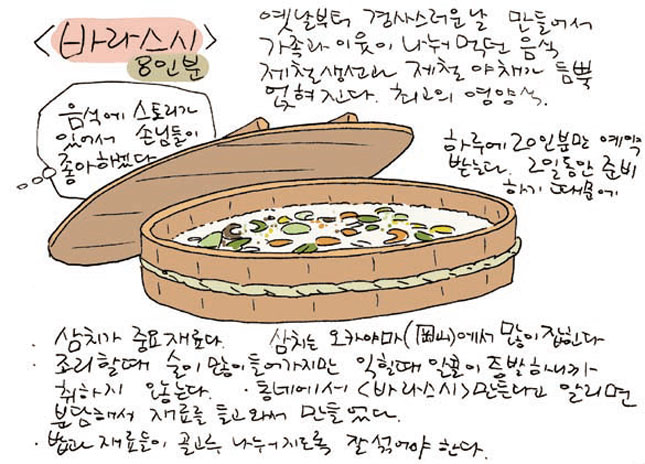 <바라스시>
8인분
옛날부터 경사스러운날 만들어서
가족과 이웃이 나누어 먹던 음식
제철생선과 제철 야채가 듬뿍
얹혀진다. 최고의 영양식.
음식에 스토리가
있어서 손님들이
좋아하겠다
하루에 20인분만 예약
받는다. 2일동안 준비
하기 때문에
· 삼치가 중요재료다. 삼치는 오카야마(岡山)에서 많이 잡힌다
· 조리할때 술이 많이 들어가지만 익힐때 알콜이 증발하니까
취하지 않는다. · 동네에서 <바라스시> 만든다고 알리면
분담해서 재료를 들고와서 만들었다.
· 밥과 재료들이 골고루 나누어지도록 잘 섞어야 한다.